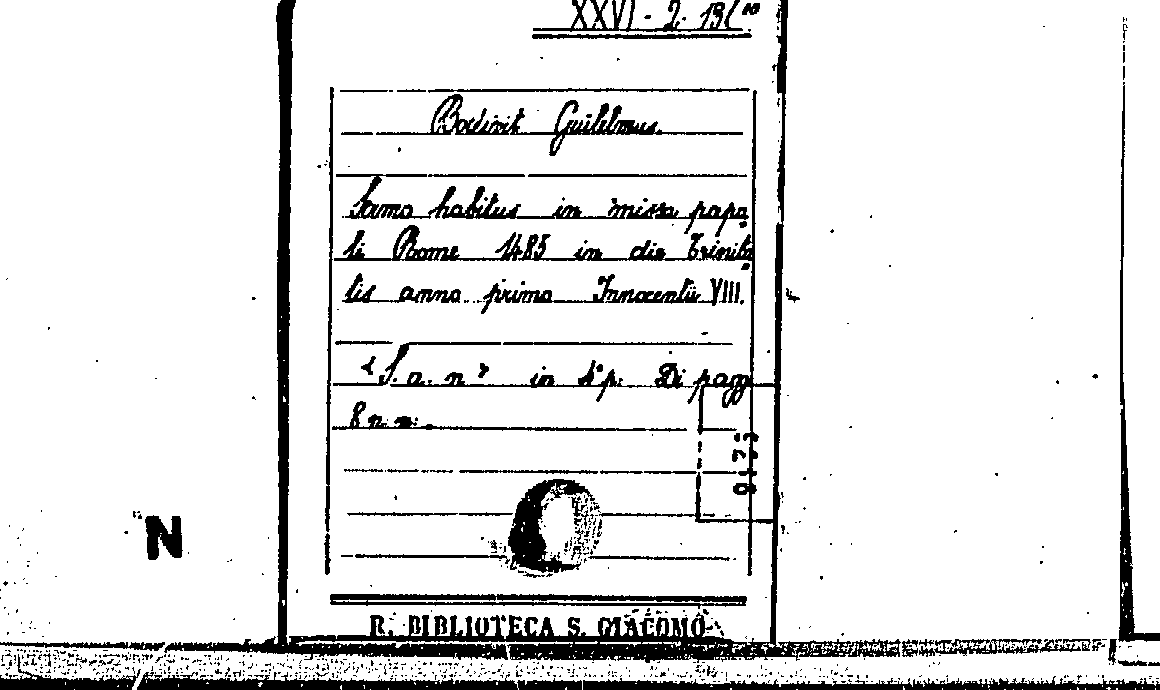 XXVI - 2. 13(10
Bodivit Guilelmus.
Sermo habitus in missa papa
li Rome 1485 in die Trinita
tis anno primo Innocentii VIII.
"S. a. n" in 4° p. Di pagg
8 n. n.
9175
N
R. BIBLIOTECA S. GIACOMO